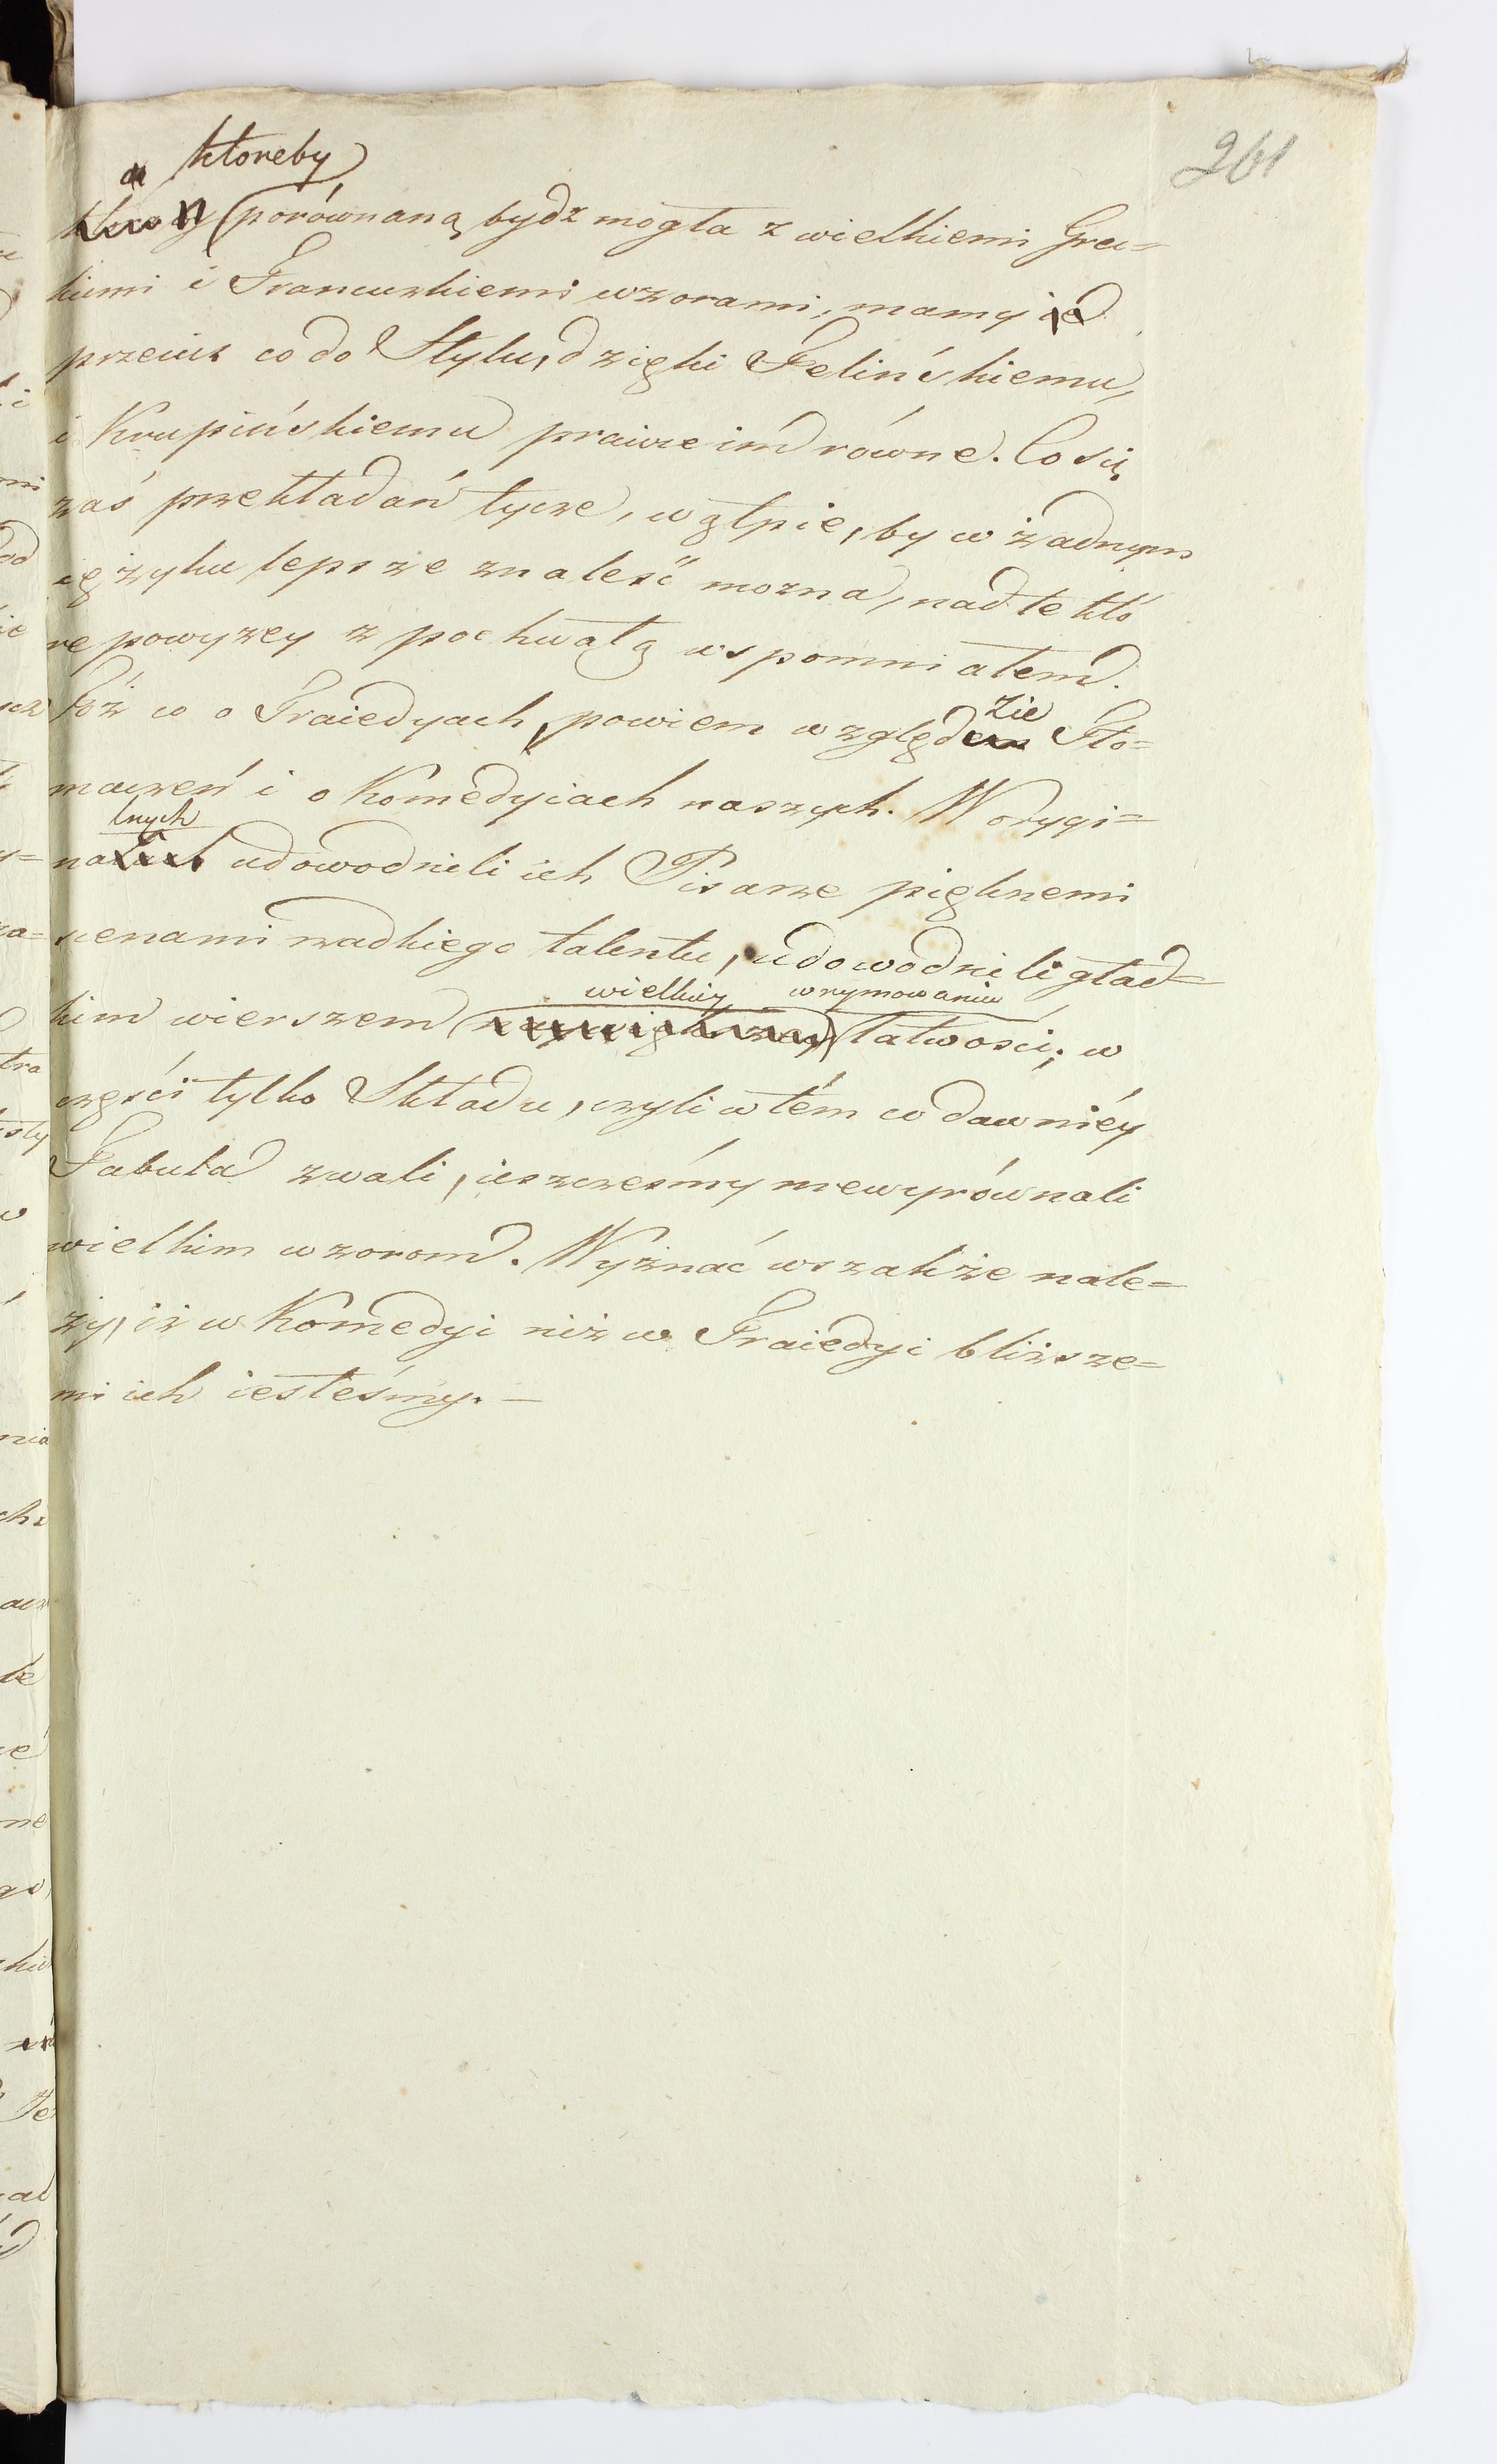 261
ktoreby
porównaną bydz mogła z wielkiemi Grec=
kiemi i Francuzkiemi wzorami, mamy ie
przecież co do Stylu, dzięki Felińskiemu,
i Kropińskiemu prawie im równe. Co się
zaś przekładań tycze, wątpię, by w żadnym
ięzyku lepsze znaleść można, nad te któ
re powyzey z pochwałą wspomniałem.
Toż co o Traiedyach, powiem względ zie Tło=
maczeń i o Komedyiach naszych. W orygi=
lnych
na udowodnili ich Pisarze pięknemi
scenami rzadkiego talentu, udowodnili gład=
wielkiéy w rymowaniu
kim wierszem łatwości; w
części tylko Składu, czyli w tém co dawniéy
Fabuła zwali, ieszcześmy niewyrównali
wielkim wzorom. Wyznać wszakże nale=
ży, iż w Komedyi niż w Traiedyi bliższe=
mi ich iesteśmy. —